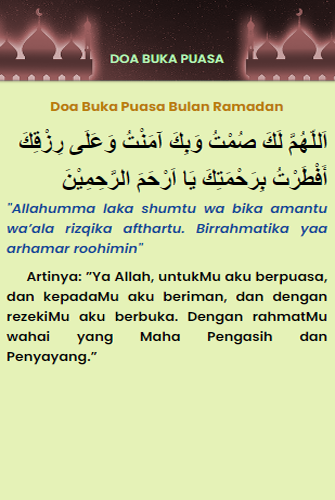 DOA BUKA PUASA
Doa Buka Puasa Bulan Ramadan
اَللّٰهُمَّ لَكَ صُمْتُ وَبِكَ آمَنْتُ وَعَلَى رِزْقِكَ
أَفْطَرْتُ بِرَحْمَتِكَ يَا اَرْحَمَ الرَّحِمِيْنَ
"Allahumma laka shumtu wa bika amantu
wa’ala rizqika afthartu. Birrahmatika yaa
arhamar roohimin"
Artinya: ”Ya Allah, untukMu aku berpuasa,
dan kepadaMu aku beriman, dan dengan
rezekiMu aku berbuka. Dengan rahmatMu
wahai yang Maha Pengasih dan
Penyayang.”